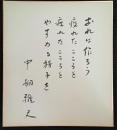 おれは作ろう
疲れたこころと
疲れたこころを
やすめる椅子を